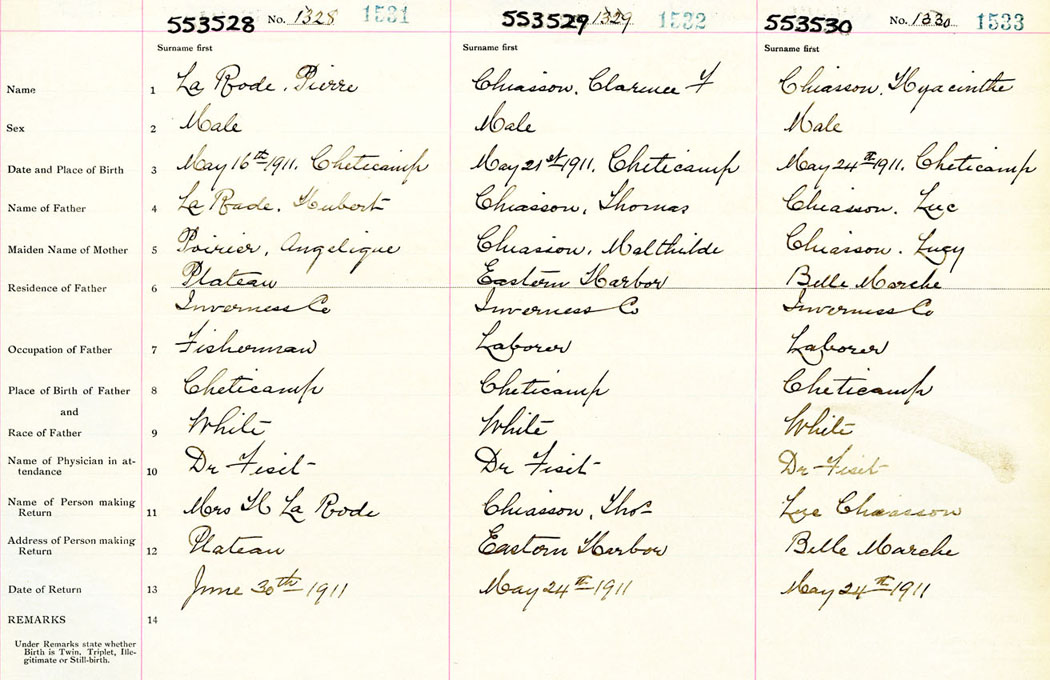 553528 No. 1328 1531 553529 1329 1532 553530 No. 1330 1533
Surname first Surname first Surname first
Name 1 La Rode, Pierre Chiasson, Clarence F Chiasson, Hyacinthe
Sex 2 Male Male Male
Date and Place of Birth 3 May 16th 1911, Cheticamp May 21st 1911, Cheticamp May 24th 1911, Cheticamp
Name of Father 4 La Rade, Hubert Chiasson, Thomas Chiasson. Luc
Maiden Name of Mother 5 Poirier, Angelique Chiasson, Malthilde Chiasson. Lucy
Residence of Father 6 Plateau Eastern Harbor Belle Marche
Inverness Co Inverness Co Inverness Co
Occupation of Father 7 Fisherman Laborer Laborer
Place of Birth of Father 8 Cheticamp Cheticamp Cheticamp
and
Race of Father 9 White White White
Name of Physician in at-
tendance 10 Dr Fiset Dr Fiset Dr Fiset
Name of Person making
Return 11 Mrs H La Rode Chiasson, Thos Luc Chiasson
Address of Person making
Return 12 Plateau Eastern Harbor Belle Marche
Date of Return 13 June 30th 1911 May 24th 1911 May 24th 1911
REMARKS 14
Under Remarks state whether
Birth is Twin, Triplet, Ille-
gitimate or Still-birth.